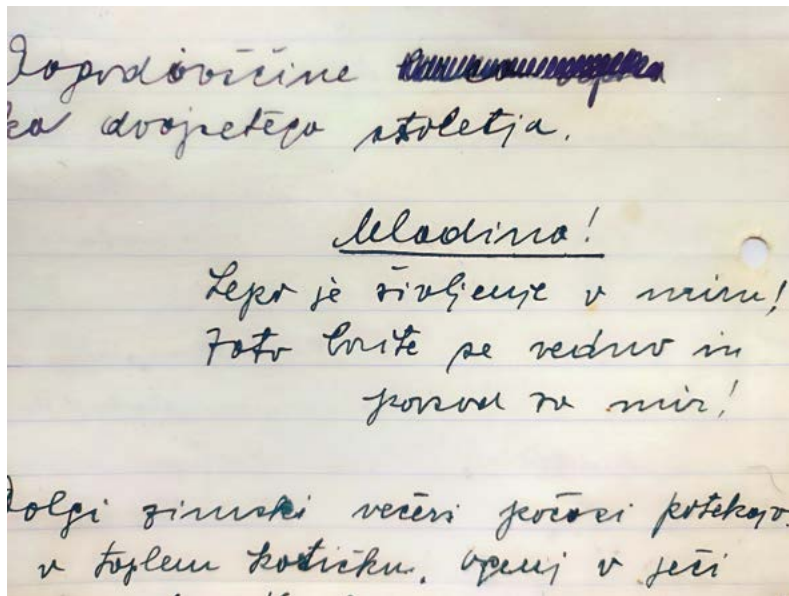 Dogodovščine
dvajsetega stoletja.
Mladina!
Lepo je življenje v miru!
Zato borite se vedno in
povsod za mir!
Dolgi zimski večeri počasi potekajo
v toplem kotičku. Ogenj v peči